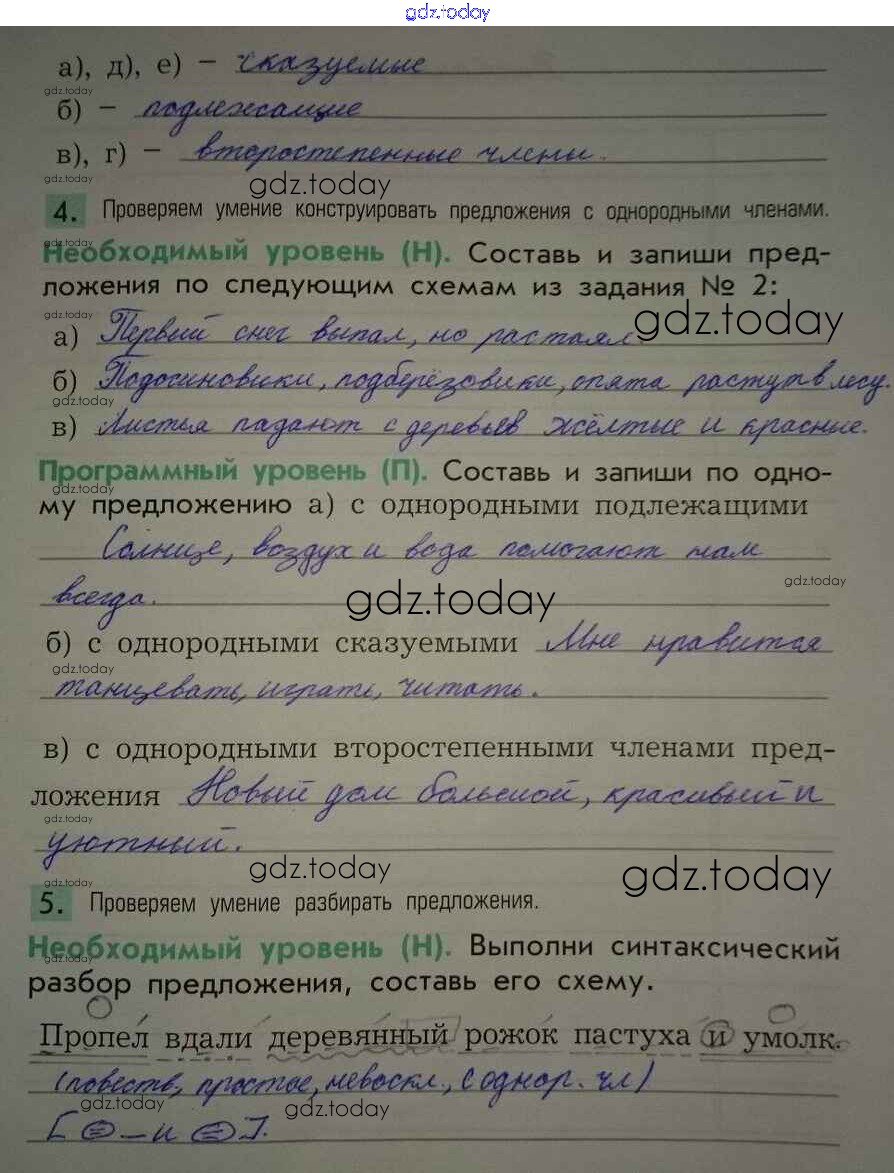 gdz.today
а), д), е) – сказуемые
gdz.today
б) – подлежащие
в), г) – второстепенные члены.
gdz.today
gdz.today
4. Проверяем умение конструировать предложения с однородными членами.
gdz.today
Необходимый уровень (Н). Составь и запиши пред-
ложения по следующим схемам из задания № 2:
gdz.today
gdz.today
а) Первый снег выпал, но растаял.
б) Подосиновики, подберёзовики, опята растут в лесу.
gdz.today
в) Листья падают с деревьев жёлтые и красные.
Программный уровень (П). Составь и запиши по одно-
gdz.today
му предложению а) с однородными подлежащими
Солнце, воздух и вода помогают нам
gdz.today
всегда.
gdz.today
б) с однородными сказуемыми Мне нравится
gdz.today
танцевать, играть, читать.
в) с однородными второстепенными членами пред-
ложения Новый дом большой, красивый и
gdz.today
уютный.
gdz.today
gdz.today
gdz.today
5. Проверяем умение разбирать предложения.
Необходимый уровень (Н). Выполни синтаксический
gdz.today
разбор предложения, составь его схему.
Пропел вдали деревянный рожок пастуха и умолк.
(повеств, простое, невоскл, с однор. чл)
gdz.today
gdz.today
[ – и ].